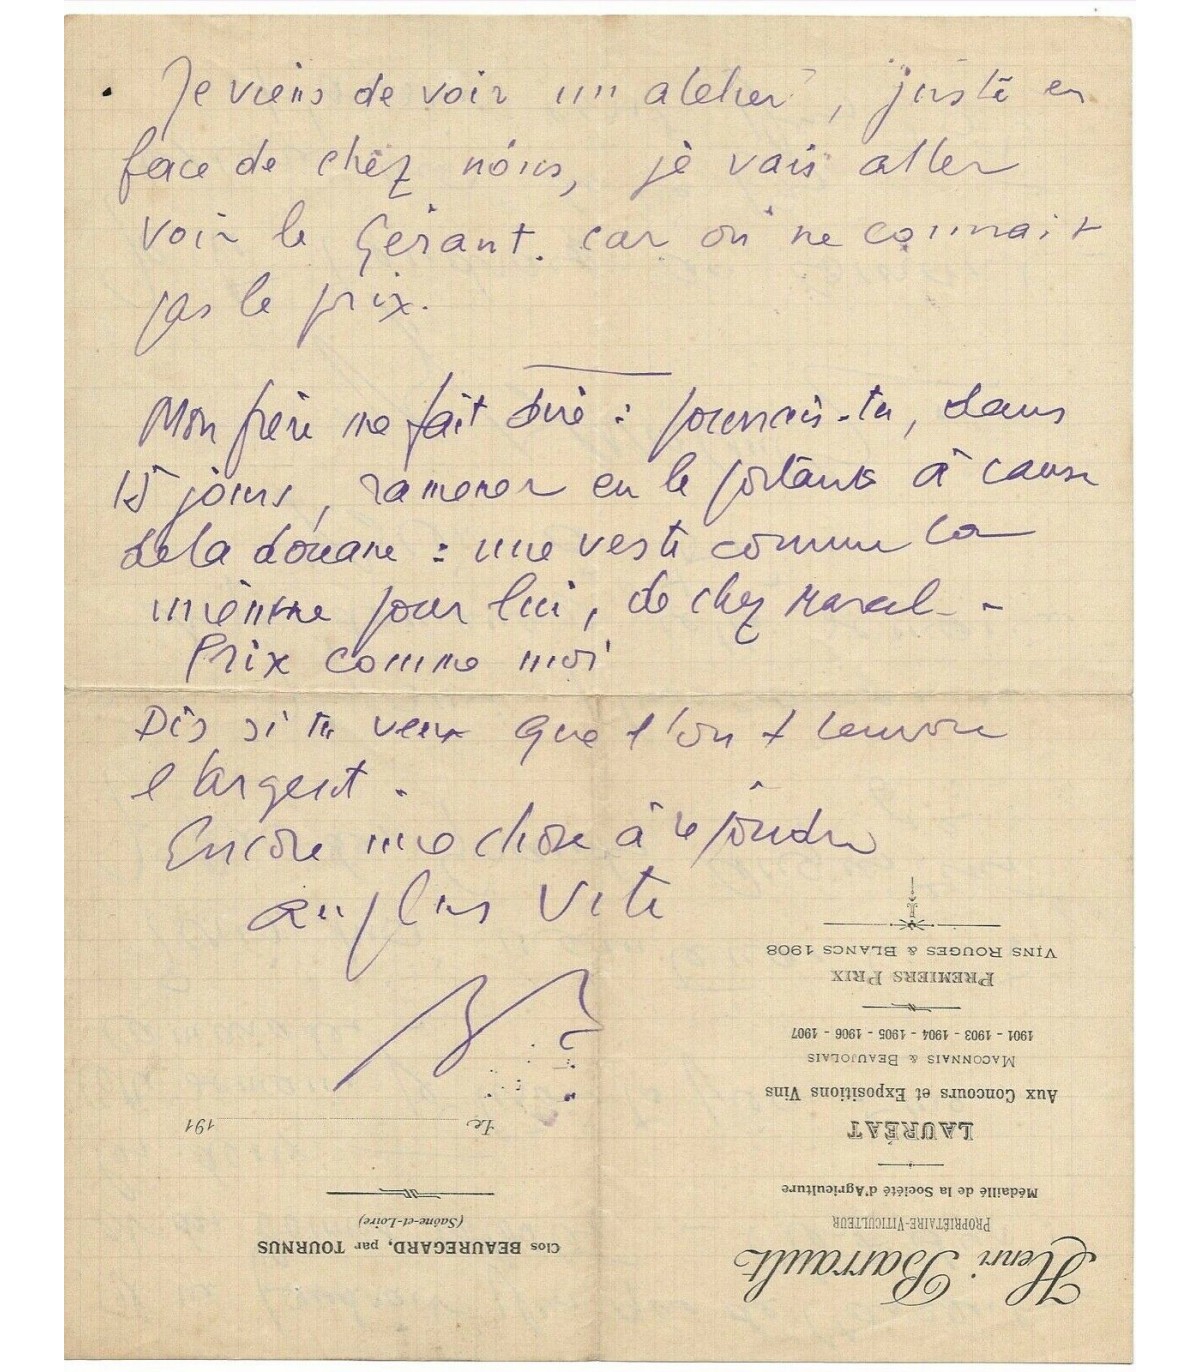 Je viens de voir un atelier, juste en
face de chez nous, je vais aller
voir le Gérant. car on ne connait
pas le prix.
Mon frère me fait dire : pourrais-tu, dans
15 jours, ramener en le portant à cause
de la douane : une veste comme la
mienne pour lui, de chez Marcel -
Prix comme moi
Dis si tu veux que l'on t'envoie
l'argent.
Encore une chose à répondre
au plus vite
Henri Barrault
PROPRIÉTAIRE-VITICULTEUR
Médaillé de la Société d'Agriculture
LAURÉAT
Aux Concours et Expositions Vins
MACONNAIS & BEAUJOLAIS
1901 - 1903 - 1904 - 1905 - 1906 - 1907
PREMIERS PRIX
VINS ROUGES & BLANCS 1908
Clos BEAUREGARD, par TOURNUS
(Saône-et-Loire)
Le 191